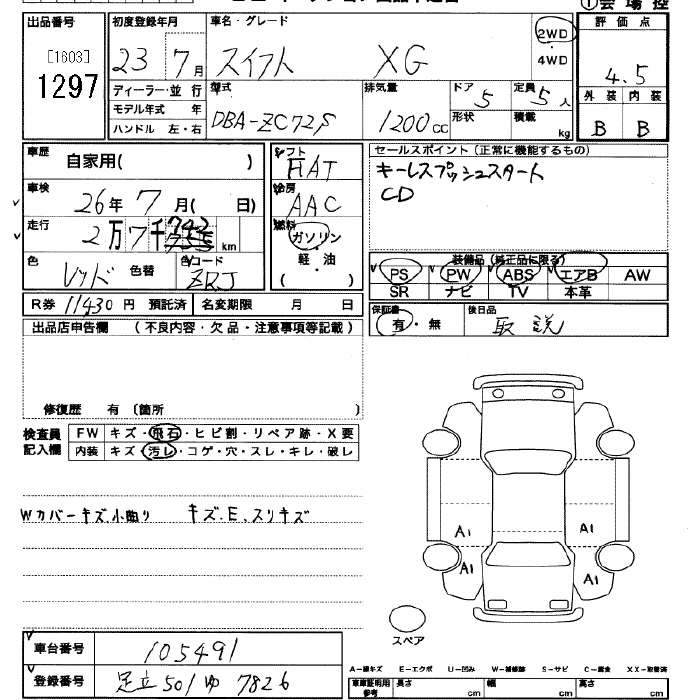 会場控
出品番号
[1603]
1297
初度登録年月
23 7月
車名・グレード
スイフト XG
2WD
4WD
評価点
4.5
外装 内装
B B
ディーラー・並 行
モデル年式 年
ハンドル 左・右
型式
DBA-ZC72S
排気量
1200cc
ドア 5
形状
定員 5人
積載 kg
車歴
自家用( )
車検
26年 7月( 日)
走行
2万7千742km
色
レッド 色替
色コード
ZRJ
シフト
FAT
冷房
AAC
燃料
ガソリン
軽・油
( )
セールスポイント(正常に機能するもの)
キーレスプッシュスタート
CD
装備品(純正品に限る)
PS PW ABS エアB AW
SR ナビ TV 本革
R券 11430円 預託済 名変期限 月 日
保証書
有・無
後日品
取説
出品店申告欄 (不良内容・欠品・注意事項等記載)
修復歴 有 (箇所 )
検査員
記入欄
FW キズ・飛石・ヒビ割・リペア跡・X要
内装 キズ・汚レ・コゲ・穴・スレ・キレ・破レ
Wカバーキズ、小曲り キズ、E、スリキズ
A1 A1
A1 A1
スペア
車台番号 105491
登録番号 足立501ゆ7826
A-線キズ E-エクボ U-凹み W-補修跡 S-サビ C-腐食 XX-交換済
車庫証明用
参考
長さ cm 幅 cm 高さ cm